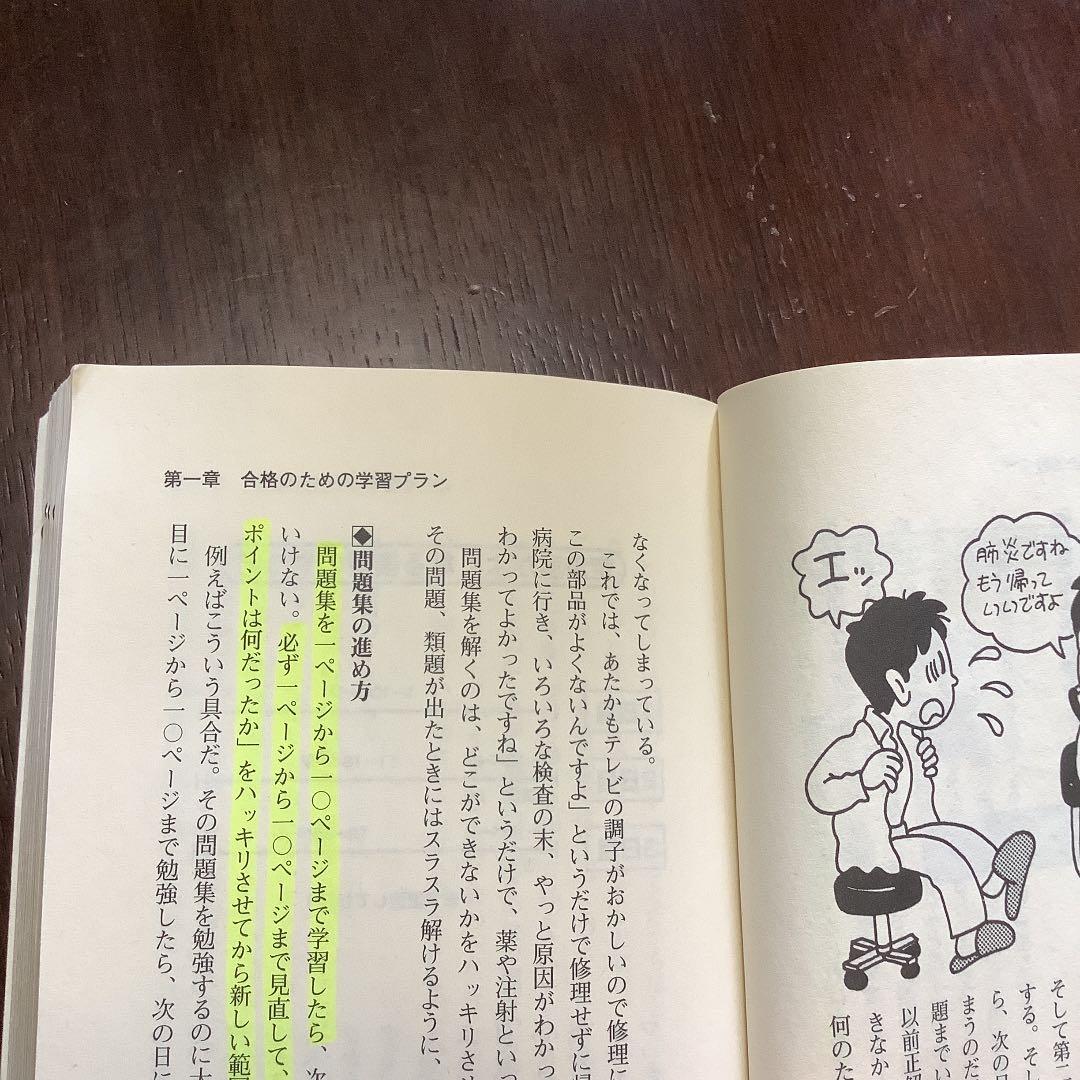 エッ
肺炎ですね
もう帰って
いいですよ
そして第二
する。そし
ら、次の日
まうのだ
題までい
以前正解
きなか
何のた
第一章　合格のための学習プラン
なくなってしまっている。
これでは、あたかもテレビの調子がおかしいので修理に
この部品がよくないんですよ」というだけで修理せずに帰
病院に行き、いろいろな検査の末、やっと原因がわかっ
わかってよかったですね」というだけで、薬や注射といっ
問題集を解くのは、どこができないかをハッキリさせ
その問題、類題が出たときにはスラスラ解けるように、
◆問題集の進め方
問題集を一ページから一〇ページまで学習したら、次
いけない。必ず一ページから一〇ページまで見直して、
ポイントは何だったか」をハッキリさせてから新しい範囲
例えばこういう具合だ。その問題集を勉強するのに大
目に一ページから一〇ページまで勉強したら、次の日に